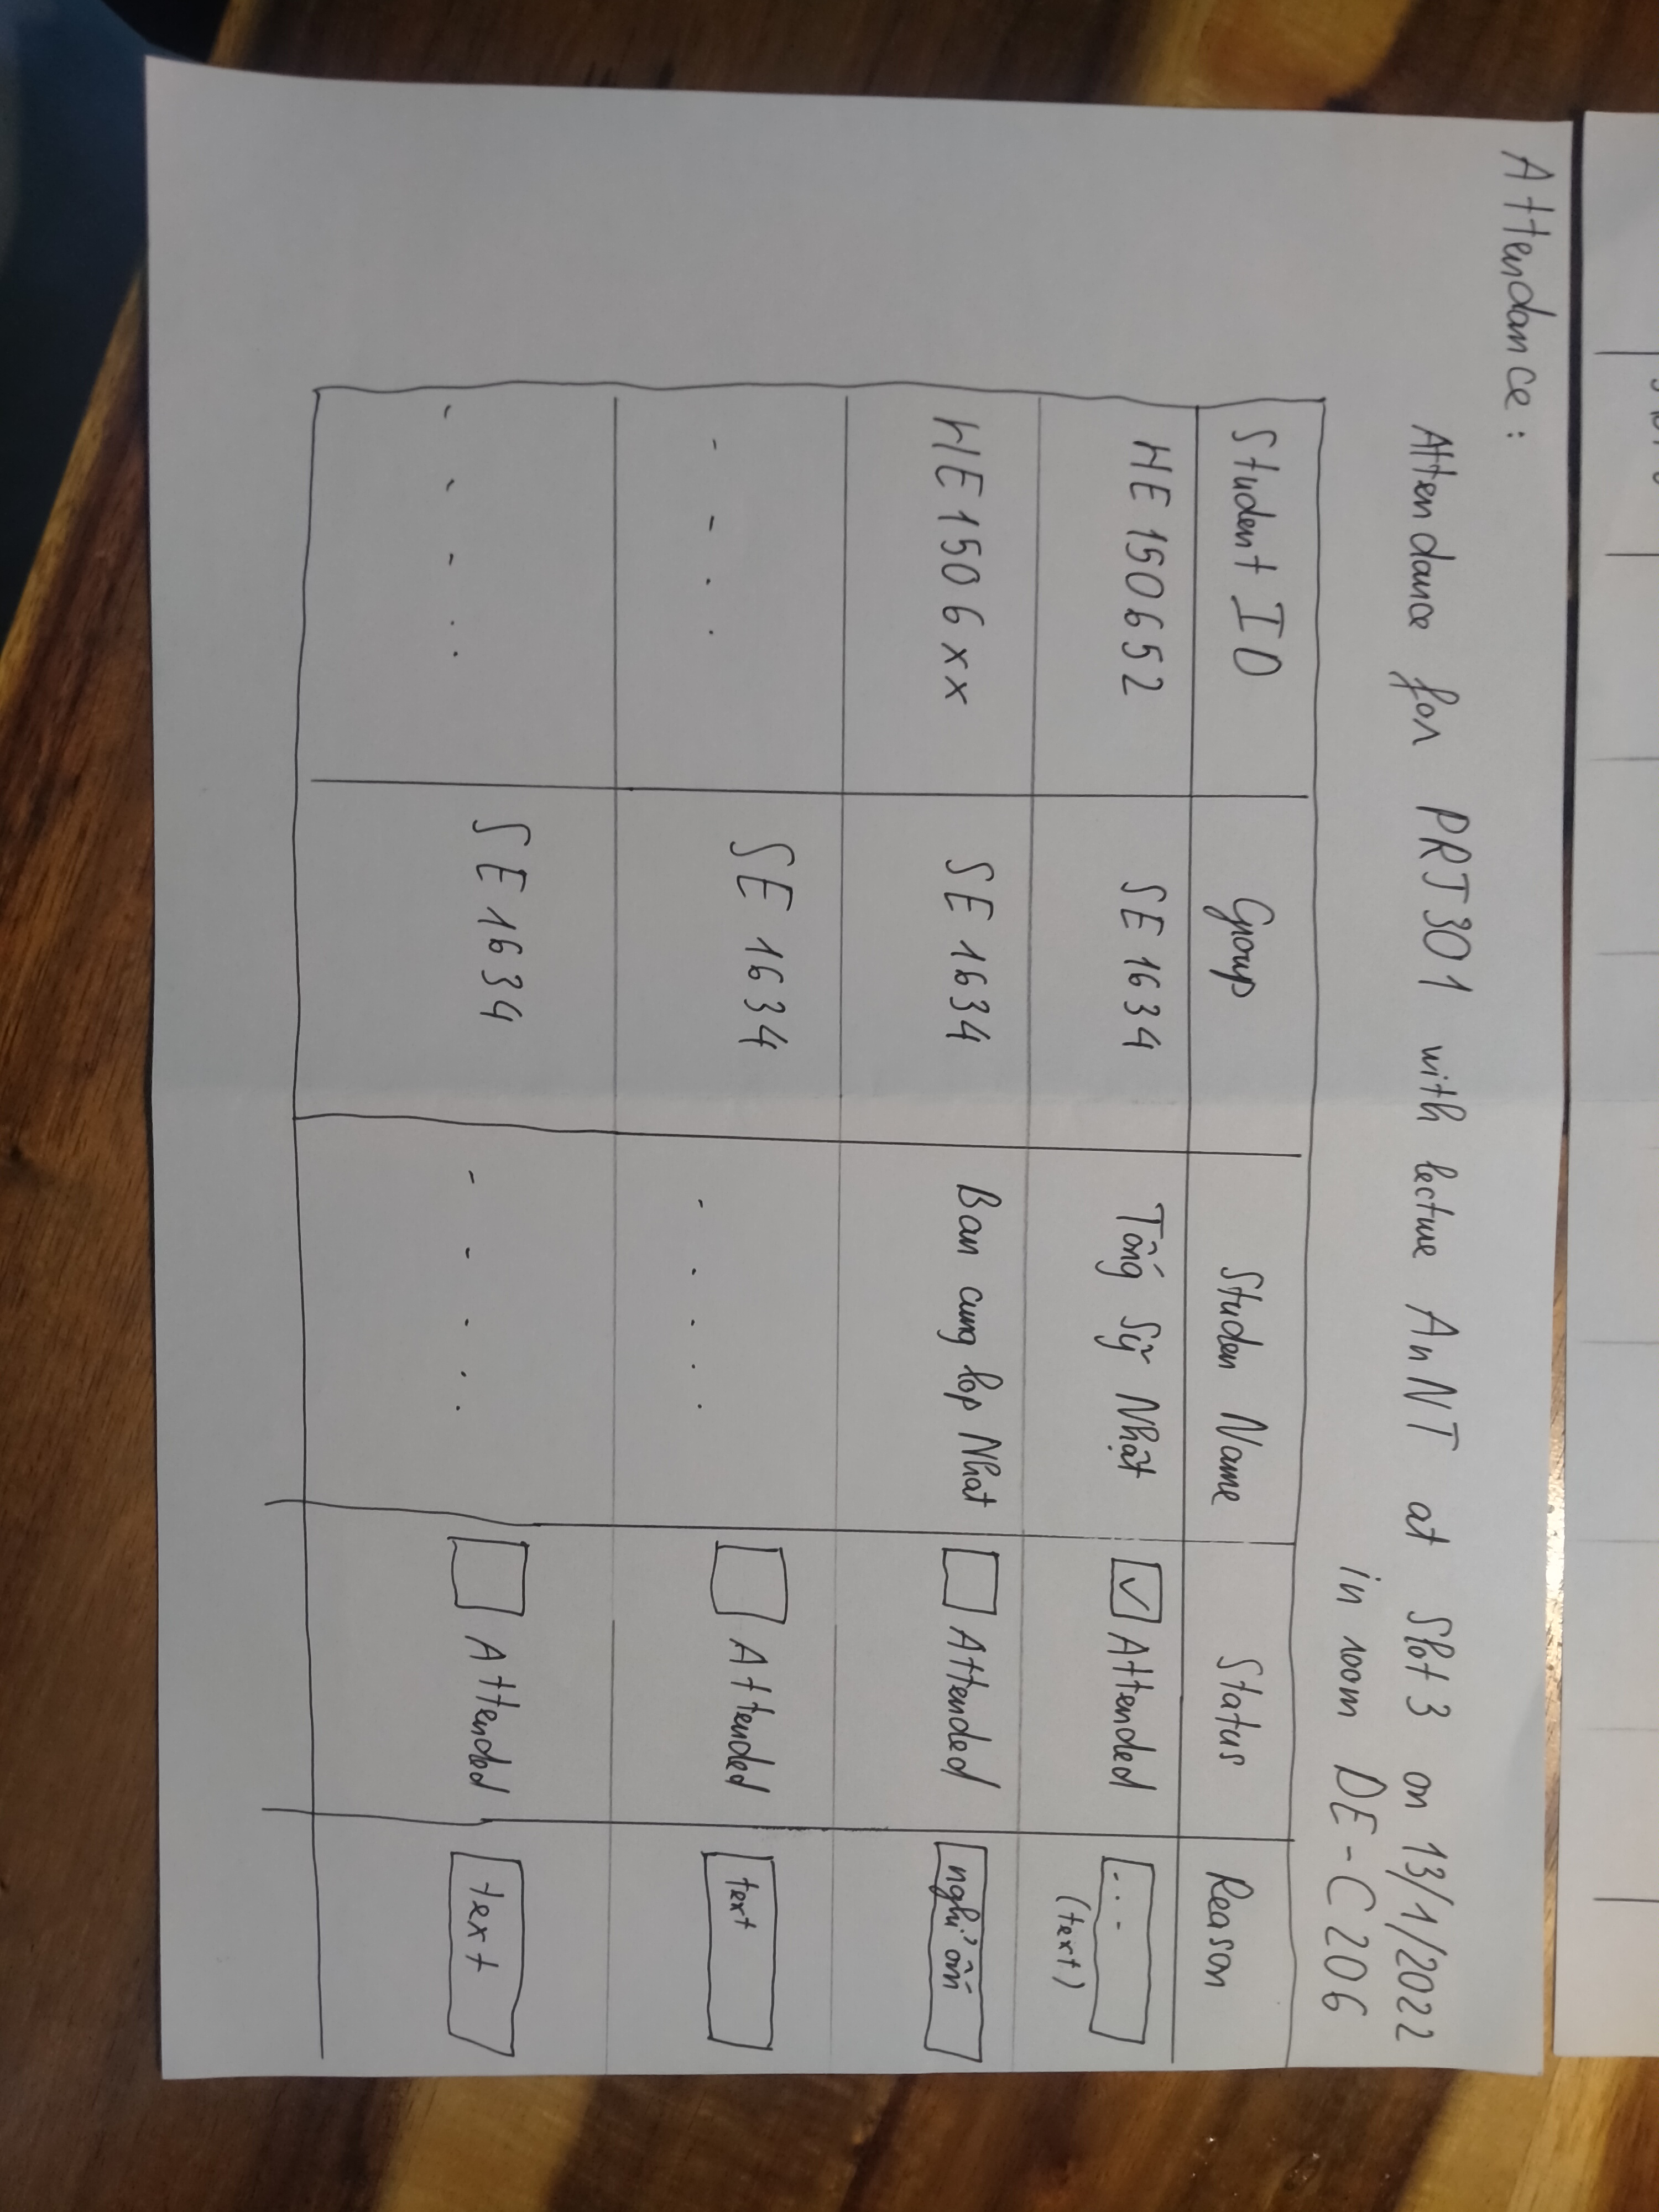 Attendance:
Attendance for PRJ301 with lecture AnNT at Slot 3 on 13/1/2022
in room DE-C206
Student ID Group Studen Name Status Reason
HE150652 SE1634 Tống Sỹ Nhật Attended ...
(text)
HE1506xx SE1634 Ban cung lop Nhat Attended nghỉ ốm
.... SE1634 ..... Attended text
..... SE1634 ..... Attended text